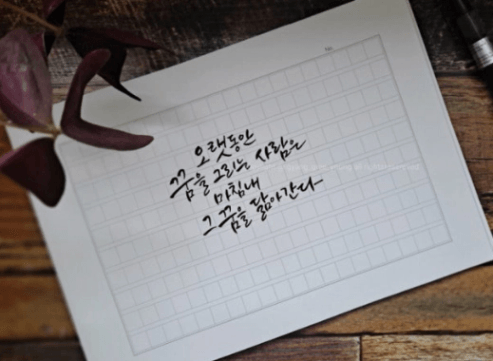 오랫동안
꿈을 그리는 사람은
마침내
그 꿈을 닮아간다